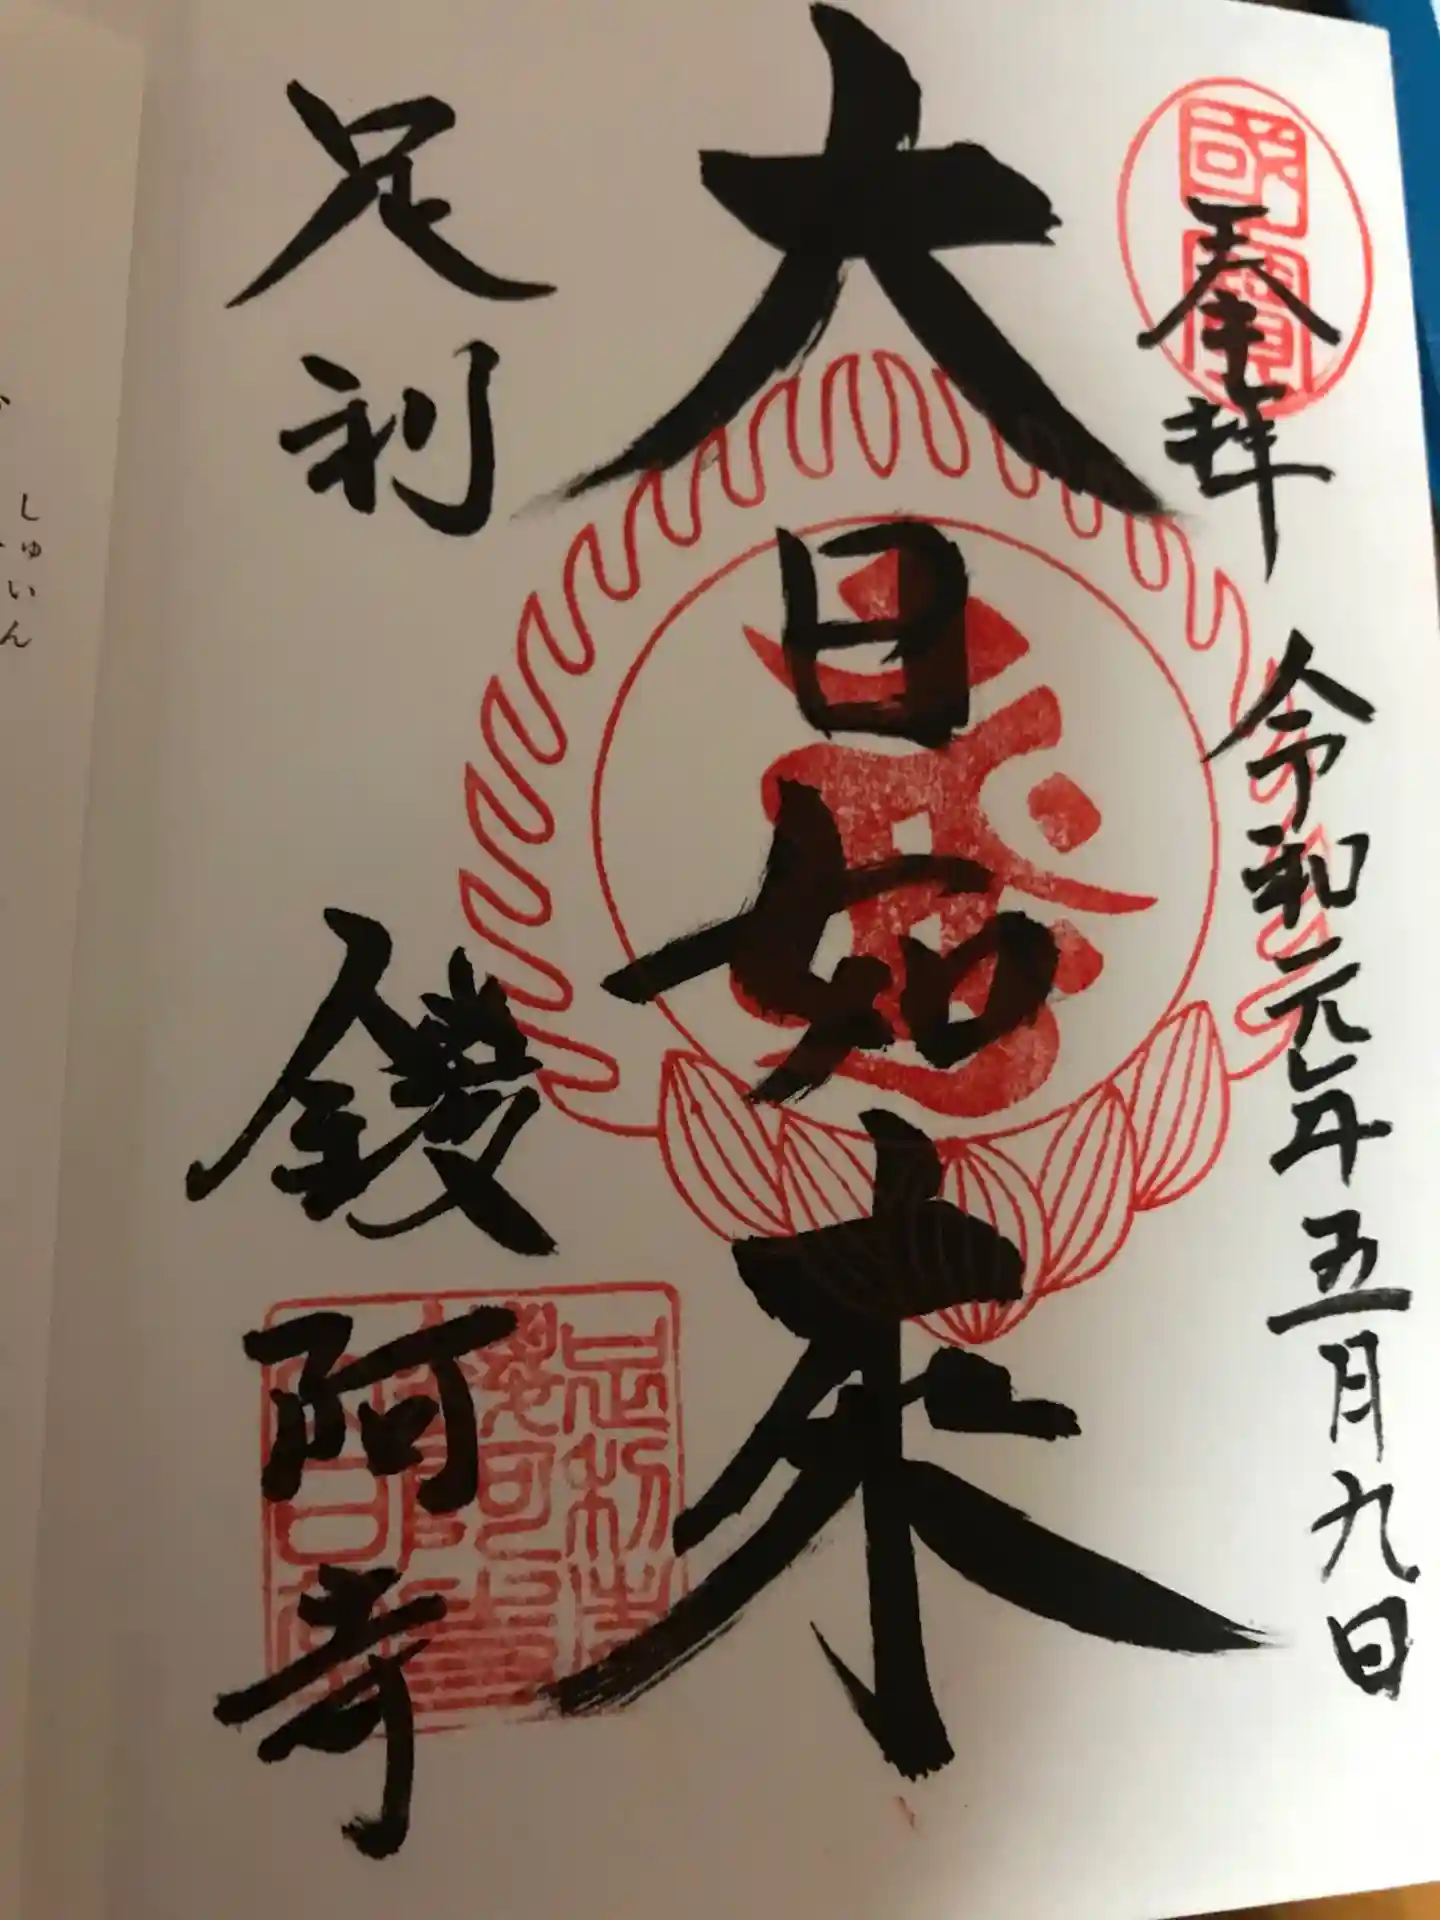 國寶
奉拝
令和元年五月九日
大日如来
足利
鑁阿寺
しゅいん